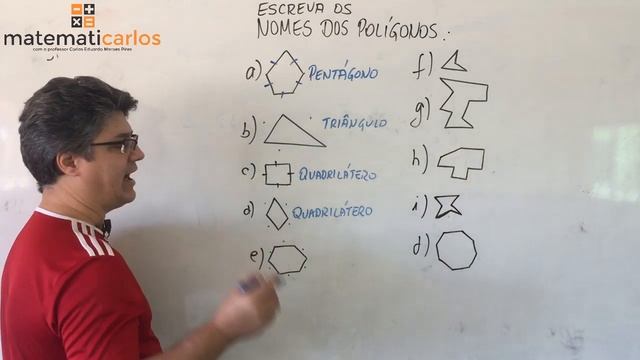 matematicarlos
com o professor Carlos Eduardo Moraes Pires
ESCREVA OS
NOMES DOS POLÍGONOS.:
a) PENTÁGONO
b) TRIÂNGULO
c) QUADRILÁTERO
d) QUADRILÁTERO
e)
f)
g)
h)
i)
d)